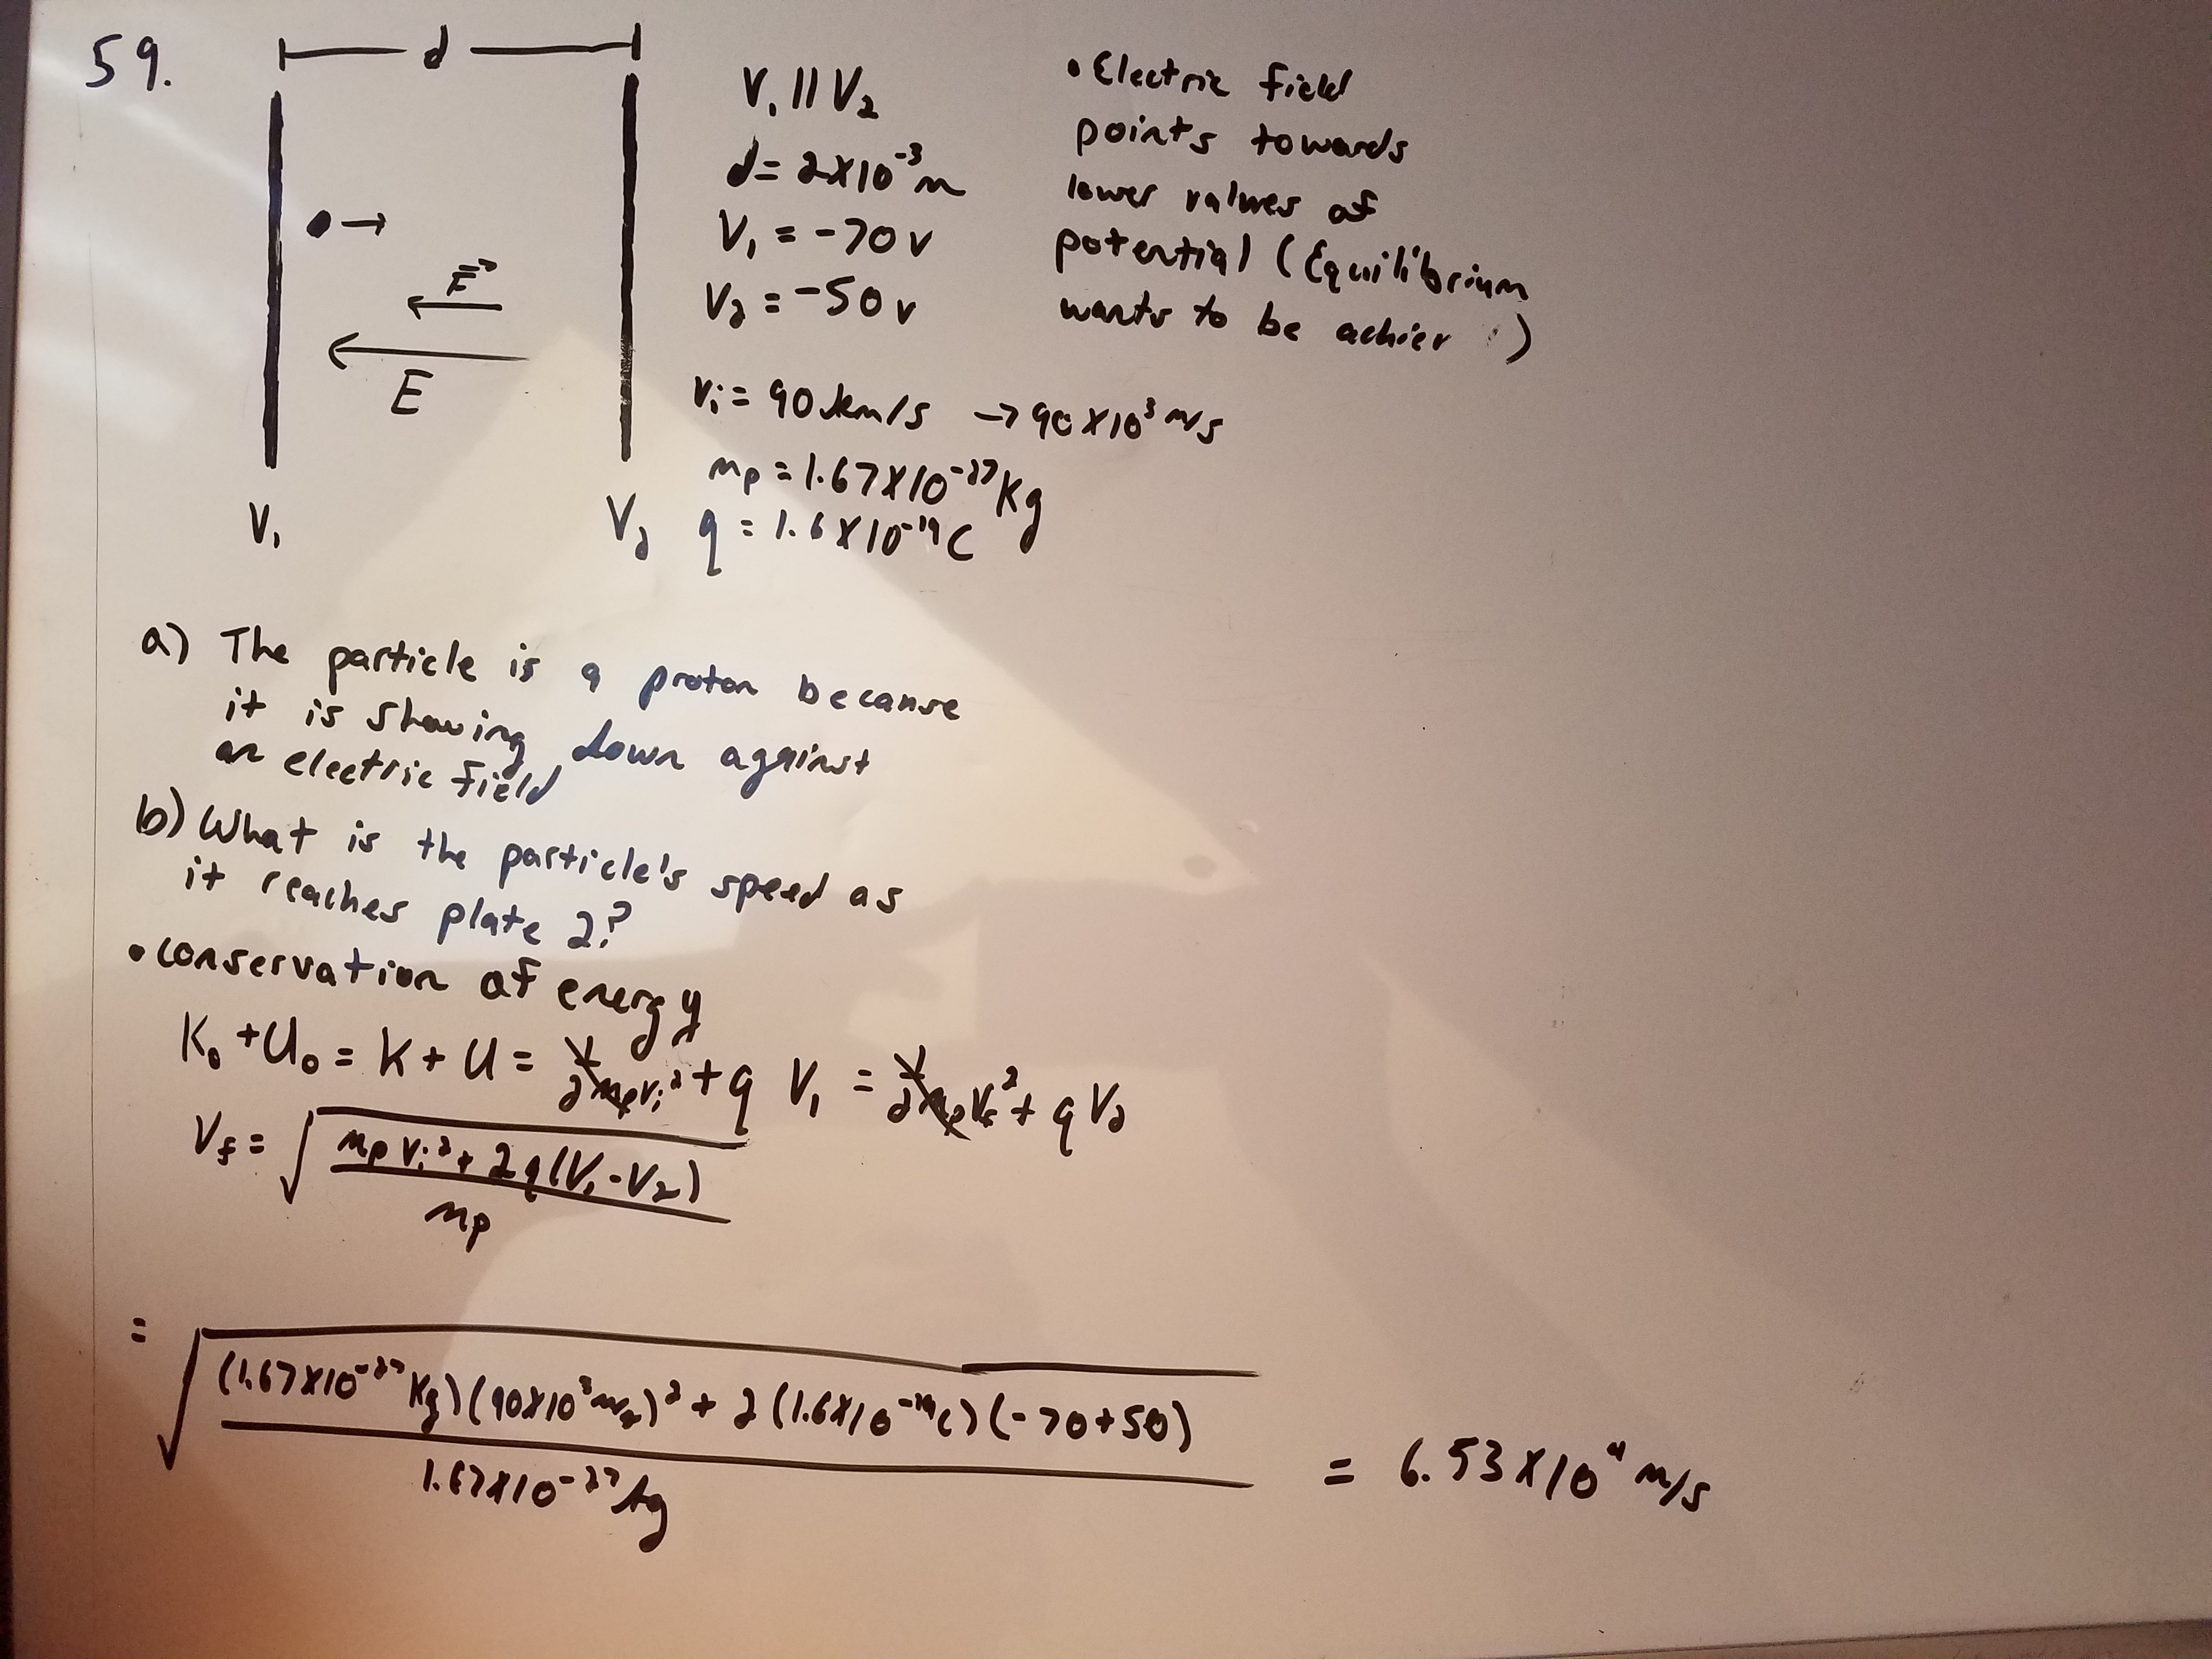 59.
d
V₁ || V₂
d = 2×10⁻³ m
V₁ = -70 v
V₂ = -50 v
• Electric field
points towards
lower values of
potential (Equilibrium
wants to be achier )
F⃗
E
vᵢ = 90 km/s → 90×10³ m/s
mp = 1.67×10⁻²⁷ Kg
q = 1.6×10⁻¹⁹ C
V₁
V₂
a) The particle is a proton because
it is slowing down against
an electric field
b) What is the particle's speed as
it reaches plate 2?
• conservation of energy
K₀ + U₀ = K + U = 1/2 mpvᵢ² + q V₁ = 1/2 mpVf² + q V₂
Vf = √((mp vᵢ² + 2q(V₁ - V₂)) / mp)
= √(((1.67×10⁻²⁷ Kg)(90×10³ m/s)² + 2(1.6×10⁻¹⁹ C)(-70+50)) / 1.67×10⁻²⁷ kg) = 6.53×10⁴ m/s